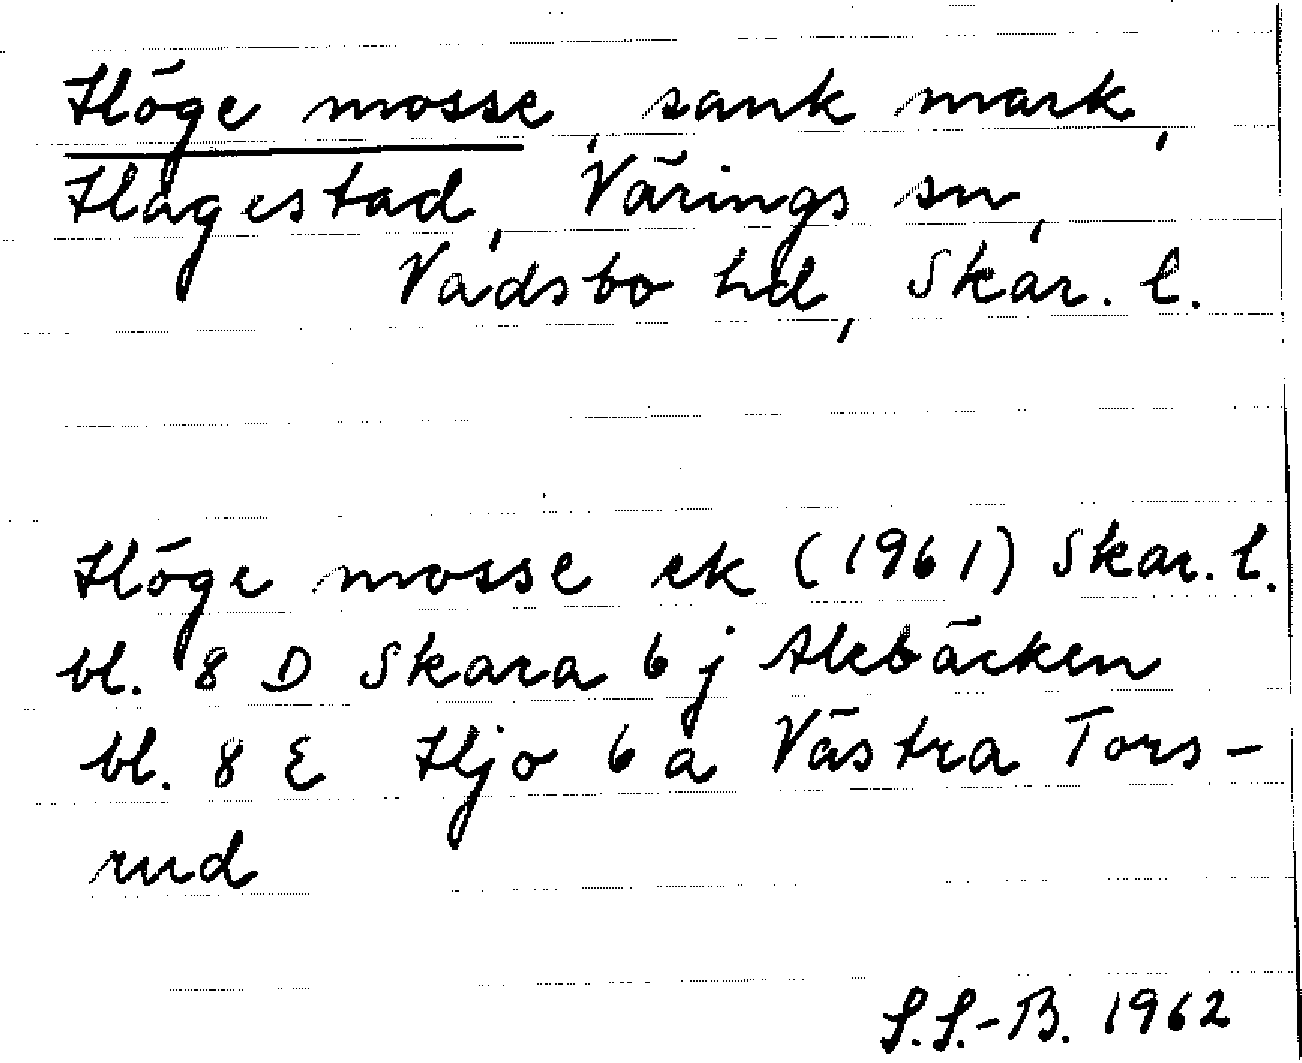 Höge mosse, sank mark,
Hagestad, Värings sn,
Vadsbo hd, Skar. l.
Höge mosse ek (1961) Skar. l.
bl. 8 D Skara 6 j Alebäcken
bl. 8 E Hjo 6 a Västra Tors-
rud
S.S.-B. 1962